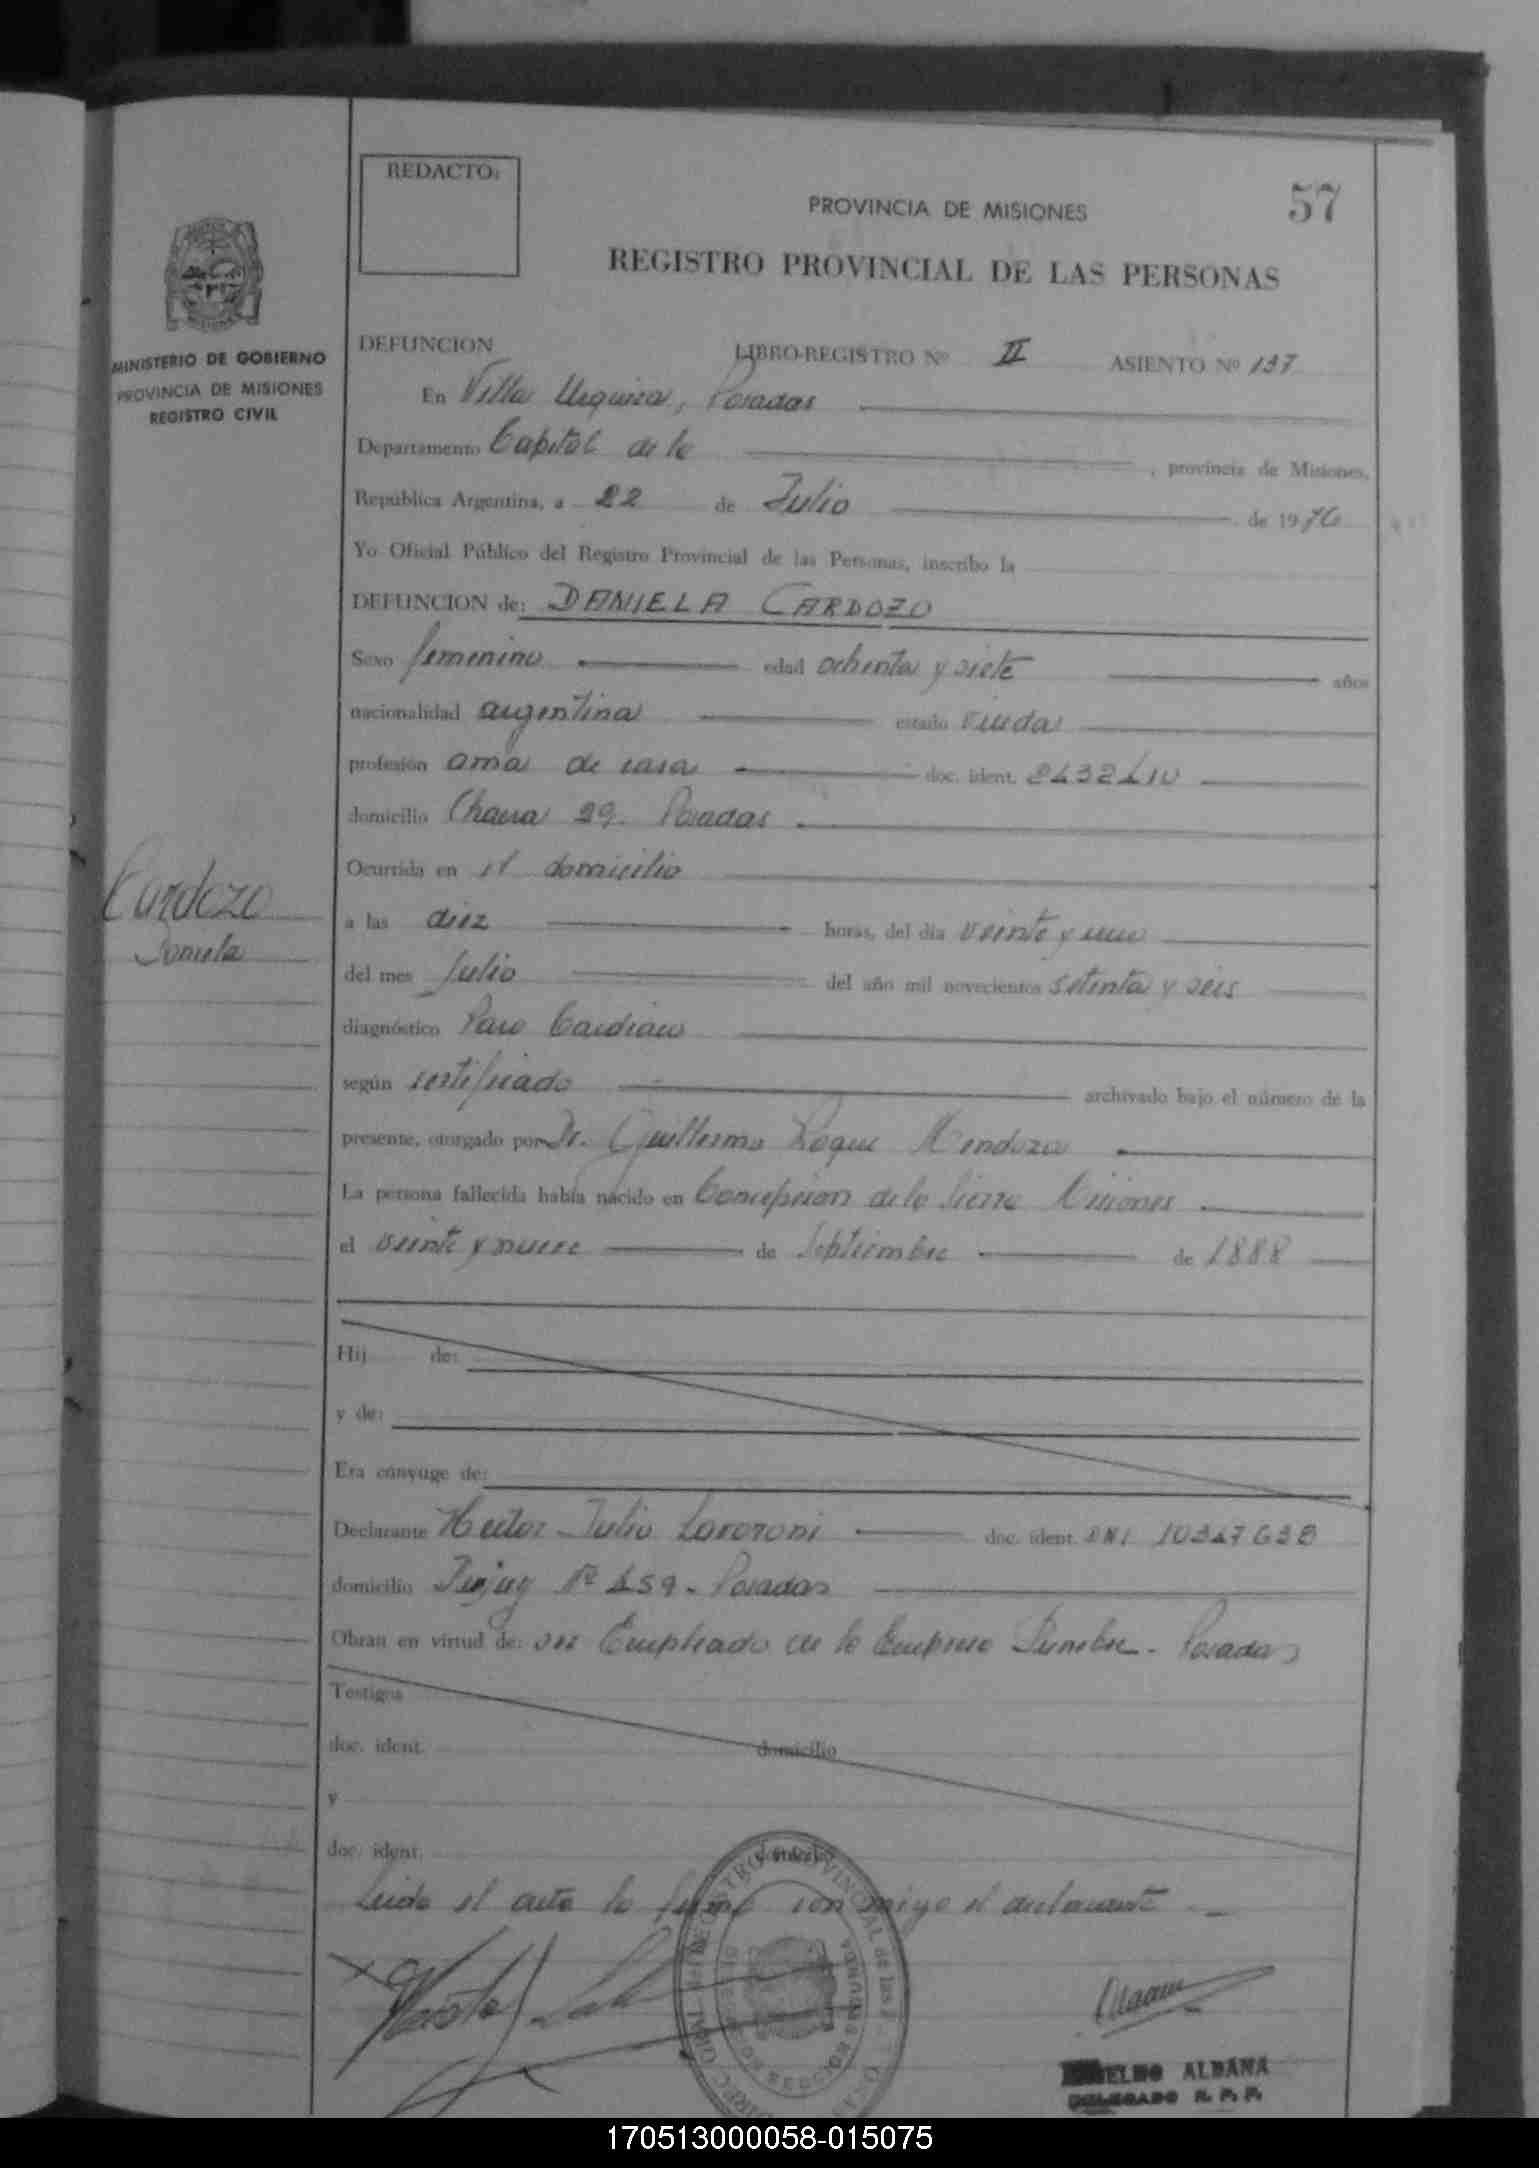 REDACTO:
PROVINCIA DE MISIONES
57
REGISTRO PROVINCIAL DE LAS PERSONAS
MINISTERIO DE GOBIERNO
PROVINCIA DE MISIONES
REGISTRO CIVIL
DEFUNCION LIBRO-REGISTRO Nº II ASIENTO Nº 137
En Villa Urquiza, Posadas
Departamento Capital de la , provincia de Misiones,
República Argentina, a 22 de Julio de 1976
Yo Oficial Público del Registro Provincial de las Personas, inscribo la
DEFUNCION de: DANIELA CARDOZO
Sexo femenino edad ochenta y siete años
nacionalidad argentina estado viuda
profesión ama de casa doc. ident.
domicilio Chacra 29. Posadas
Ocurrida en el domicilio
Cardozo
Daniela
a las diez horas, del día veinte y uno
del mes Julio del año mil novecientos setenta y seis
diagnóstico Paro Cardiaco
según certificado archivado bajo el número de la
presente, otorgado por Dr. Guillermo Roque Mendoza
La persona fallecida había nacido en Concepcion de la Sierra Misiones
el veinte y nueve de Septiembre de 1888
Hij de:
y de:
Era cónyuge de:
Declarante Hector Julio doc. ident. DNI 10347638
domicilio Jujuy Nº 459. Posadas
Obran en virtud de: ser Empleado de la Empresa Funebre. Posadas
Testigos
doc. ident. domicilio
y
doc. ident. domicilio
Leida el acta la firma conmigo el declarante
REGISTRO PROVINCIAL de las
SEGUNDA
POSADAS
ALDANA
DELEGADO R. P. P.
170513000058-015075